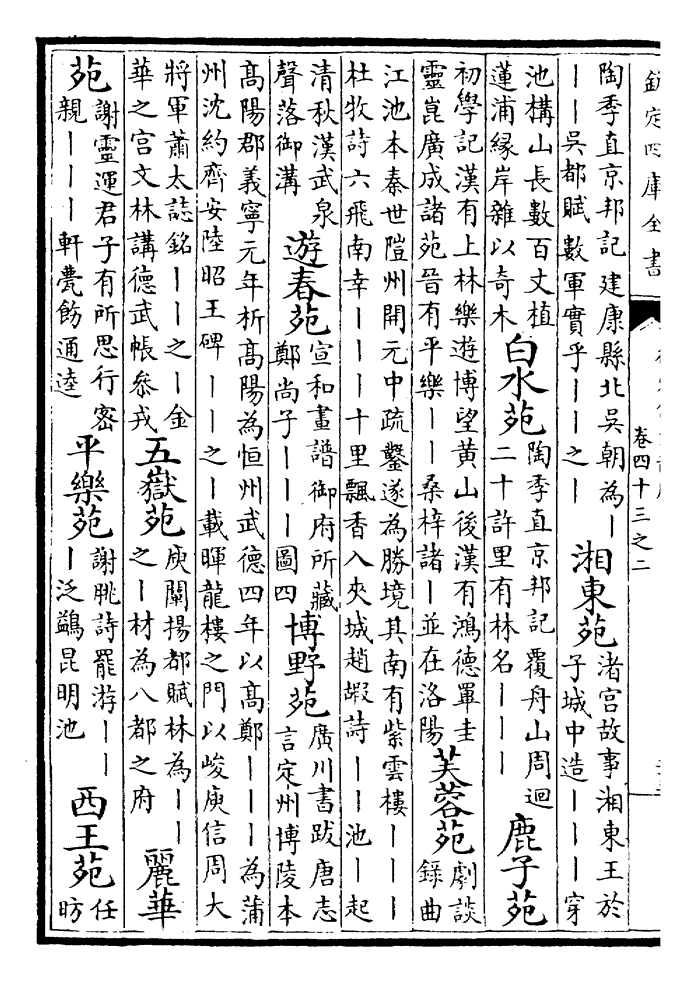 欽定四庫全書
卷四十三之二
陶季直京邦記建康縣北吳朝為丨
丨丨吳都賦數軍實乎丨丨之丨
湘東苑
渚宮故事湘東王於
子城中造丨丨丨穿
池構山長數百丈植
蓮浦緣岸雜以奇木
白水苑
陶季直京邦記覆舟山周迴
二十許里有林名丨丨丨
鹿子苑
初學記漢有上林樂遊博望黃山後漢有鴻德罼圭
靈崑廣成諸苑晉有平樂丨丨桑梓諸丨並在洛陽
芙蓉苑
劇談
錄曲
江池本秦世隑州開元中疏鑿遂為勝境其南有紫雲樓丨丨丨
杜牧詩六飛南幸丨丨丨十里飄香入夾城趙嘏詩丨丨池丨起
清秋漢武泉
聲落御溝
遊春苑
宣和畫譜御府所藏
鄭尚子丨丨丨圖四
博野苑
廣川書跋唐志
言定州博陵本
高陽郡義寧元年析高陽為恒州武德四年以高鄭丨丨為蒲
州沈約齊安陸昭王碑丨丨之丨載暉龍樓之門以峻庾信周大
將軍蕭太誌銘丨丨之丨金
華之宮文林講德武帳叅戎
五嶽苑
庾闡揚都賦林為丨丨
之丨材為八都之府
麗華
苑
謝靈運君子有所思行密
親丨丨丨軒甍飭通逵
平樂苑
謝朓詩罷游丨丨
丨泛鷁昆明池
西王苑
任
昉